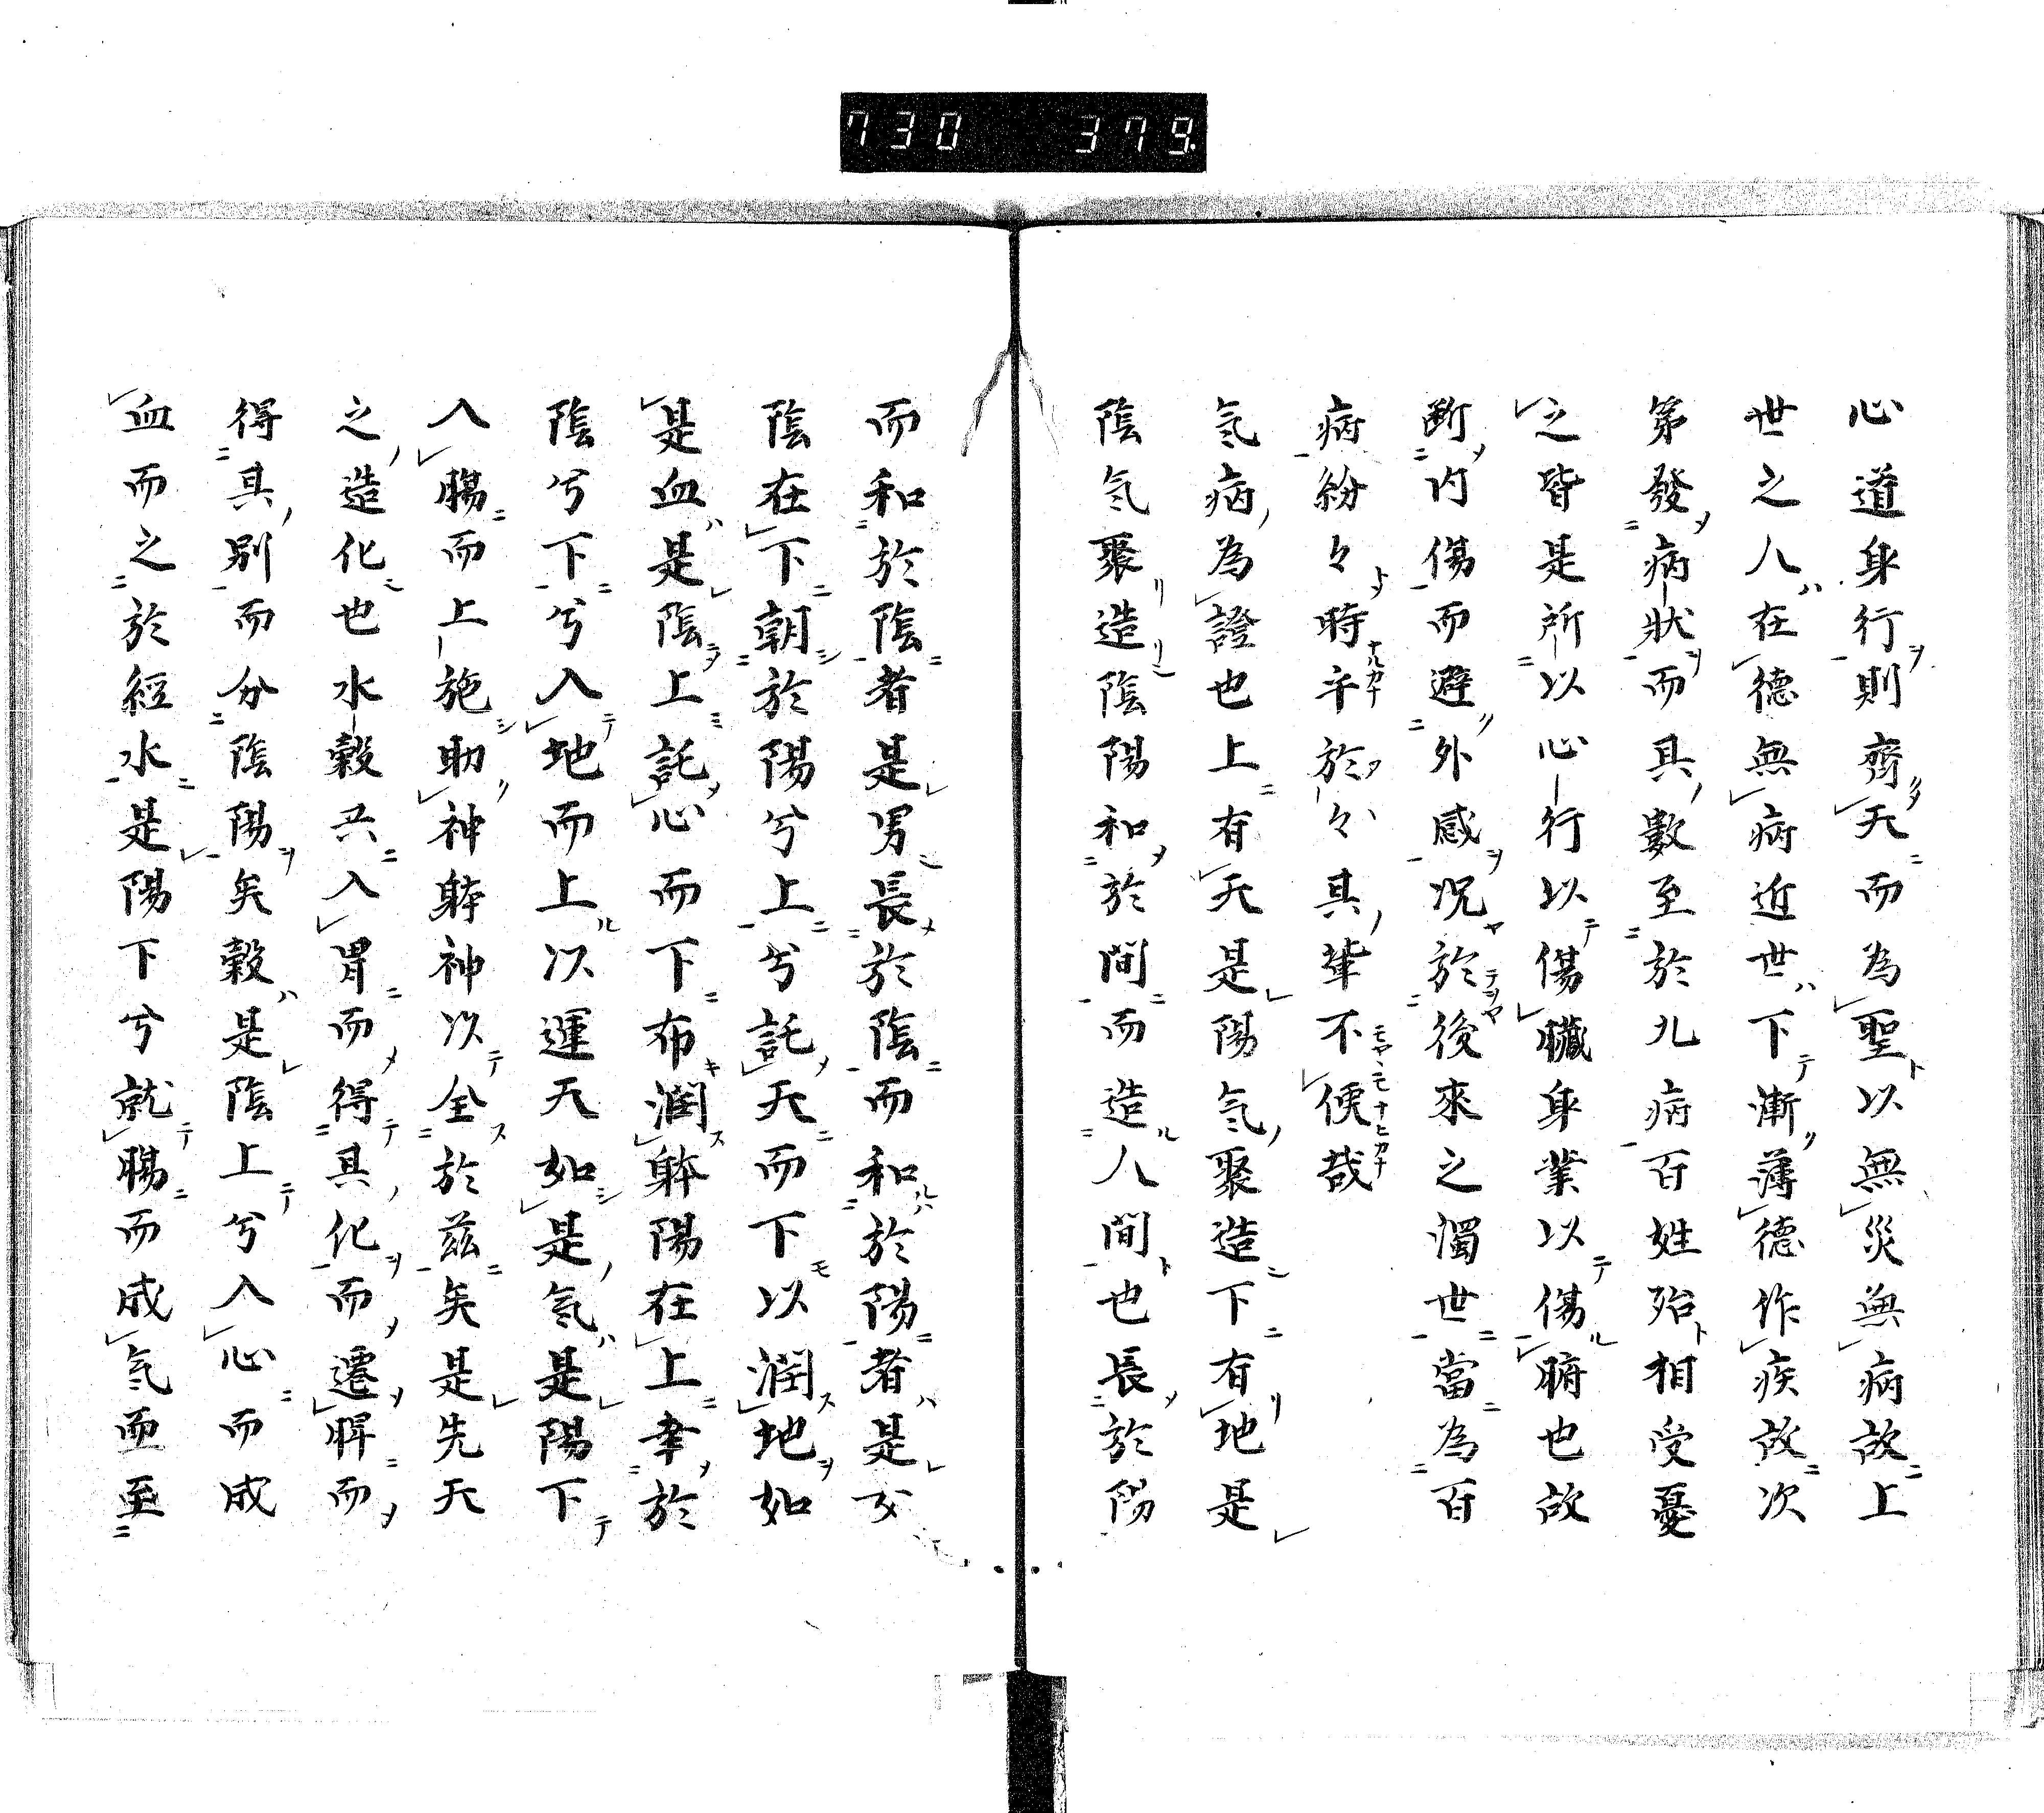 730 379
心道身行則齊天而為聖以無災無病故上
世之人在德無病近世下漸薄德作疾故次
第發病狀而其數至於九病百姓殆相受憂
之皆是所以心行以傷臟身業以傷腑也故
断内傷而避外感况於後來之濁世當為百
病紛々時乎於々其輩不便哉
気病為證也上有天是陽気聚造下有地是
陰気聚造陰陽和於間而造人間也長於陽
而和於陰者是男長於陰而和於陽者是女
陰在下朝於陽兮上兮託天而下以潤地如
是血是陰上託心而下布潤躰陽在上幸於
陰兮下兮入地而上以運天如是気是陽下
入腸而上施助神躰神以全於茲矣是先天
之造化也水穀共入胃而得其化而遷脾而
得其別而分陰陽矣穀是陰上兮入心而成
血而之於經水是陽下兮就腸而成気而至